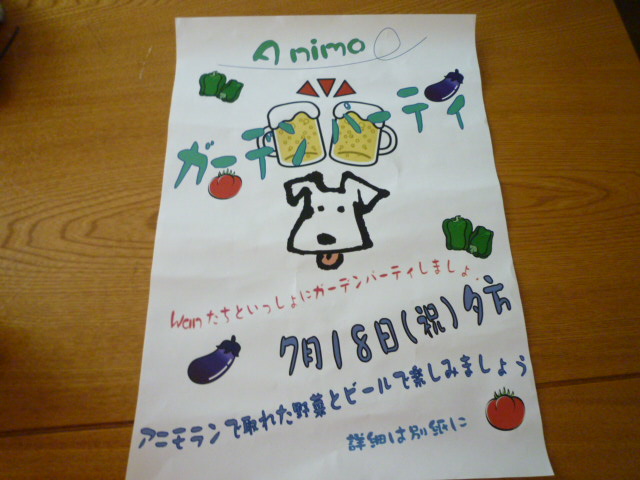 Animo
ガーデンパーティ
Wanたちといっしょにガーデンパーティしましょ
7月18日(祝)夕方
アニモランで取れた野菜とビールで楽しみましょう
詳細は別紙に